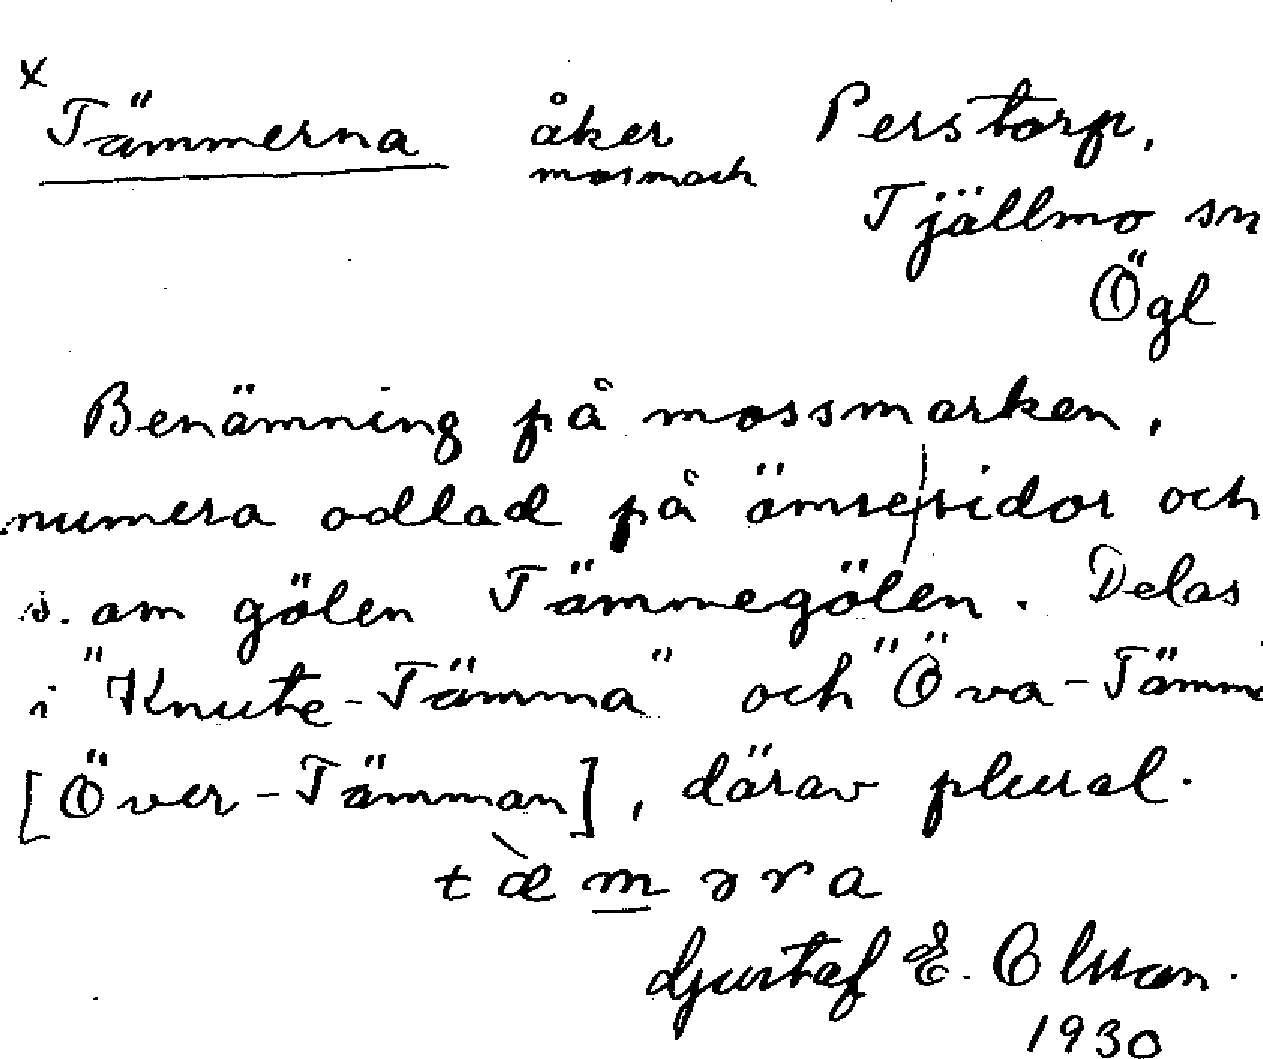 x
Tämmerna åker Perstorp,
mosmark
Tjällmo sn
Ögl
Benämning på mossmarken,
numera odlad på ömse sidor och
s. om gölen Tämmegölen. Delas
i "Knute-Tämma" och "Öva-Tämma
[Över-Tämman], därav plural.
tæ̀m̲əra
Gustaf E. Olsson.
1930